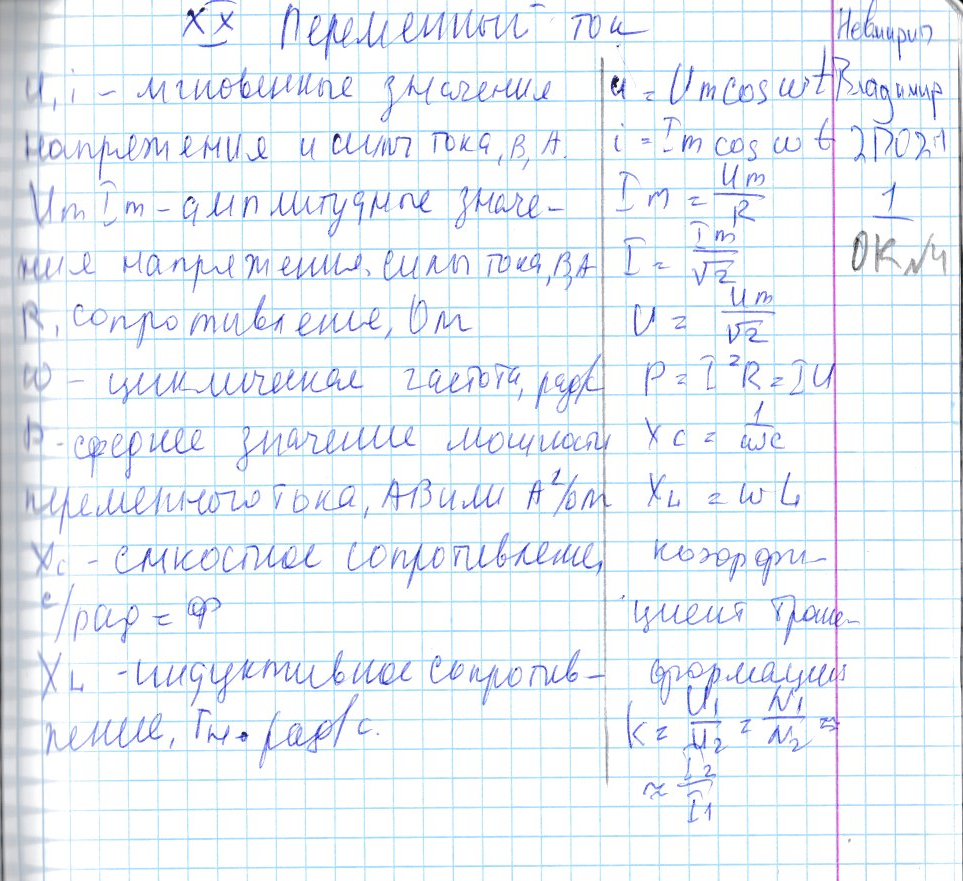 XX Переменный ток
u, i - мгновенные значения
напряжения и силы тока, В, А.
Um Im - амплитудные значе-
ния напряжения, силы тока, В, А
R, сопротивление, Ом
ω - циклическая частота, рад/с
P - среднее значение мощности
переменного тока, АВ или А²/Ом
Xc - емкостное сопротивление,
с/рад = Ф
XL - индуктивное сопротив-
ление, Гн • рад/с.
u = Um cos ωt
i = Im cos ωt
Im = Um/R
I = Im/√2
U = Um/√2
P = I²R = IU
Xc = 1/ωc
XL = ωL
коэффи-
циент транс-
формации
k = U1/U2 = N1/N2 ≈
≈ I2/I1
Владимир
1